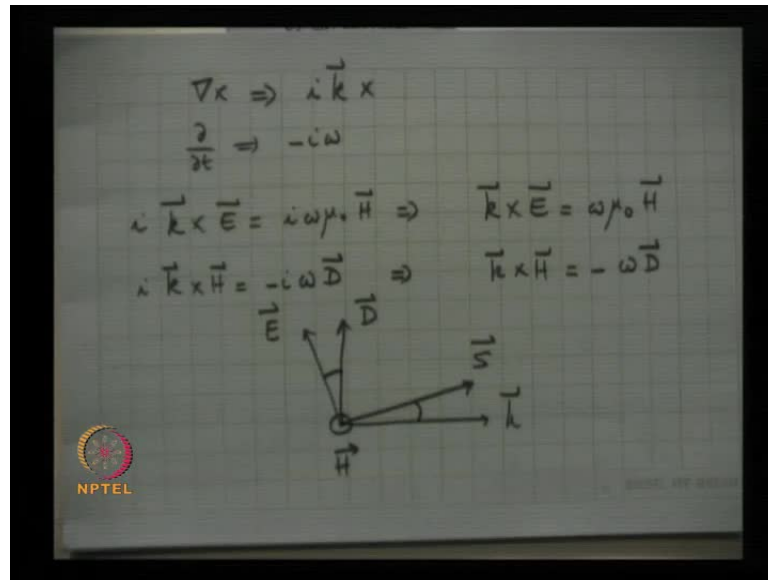 ∇× ⇒ i k⃗ ×
∂/∂t ⇒ -iω
i k⃗ × E⃗ = iωμ₀ H⃗ ⇒ k⃗ × E⃗ = ωμ₀ H⃗
i k⃗ × H⃗ = -iω D⃗ ⇒ k⃗ × H⃗ = -ω D⃗
E⃗ D⃗
S⃗
k⃗
H⃗
NPTEL